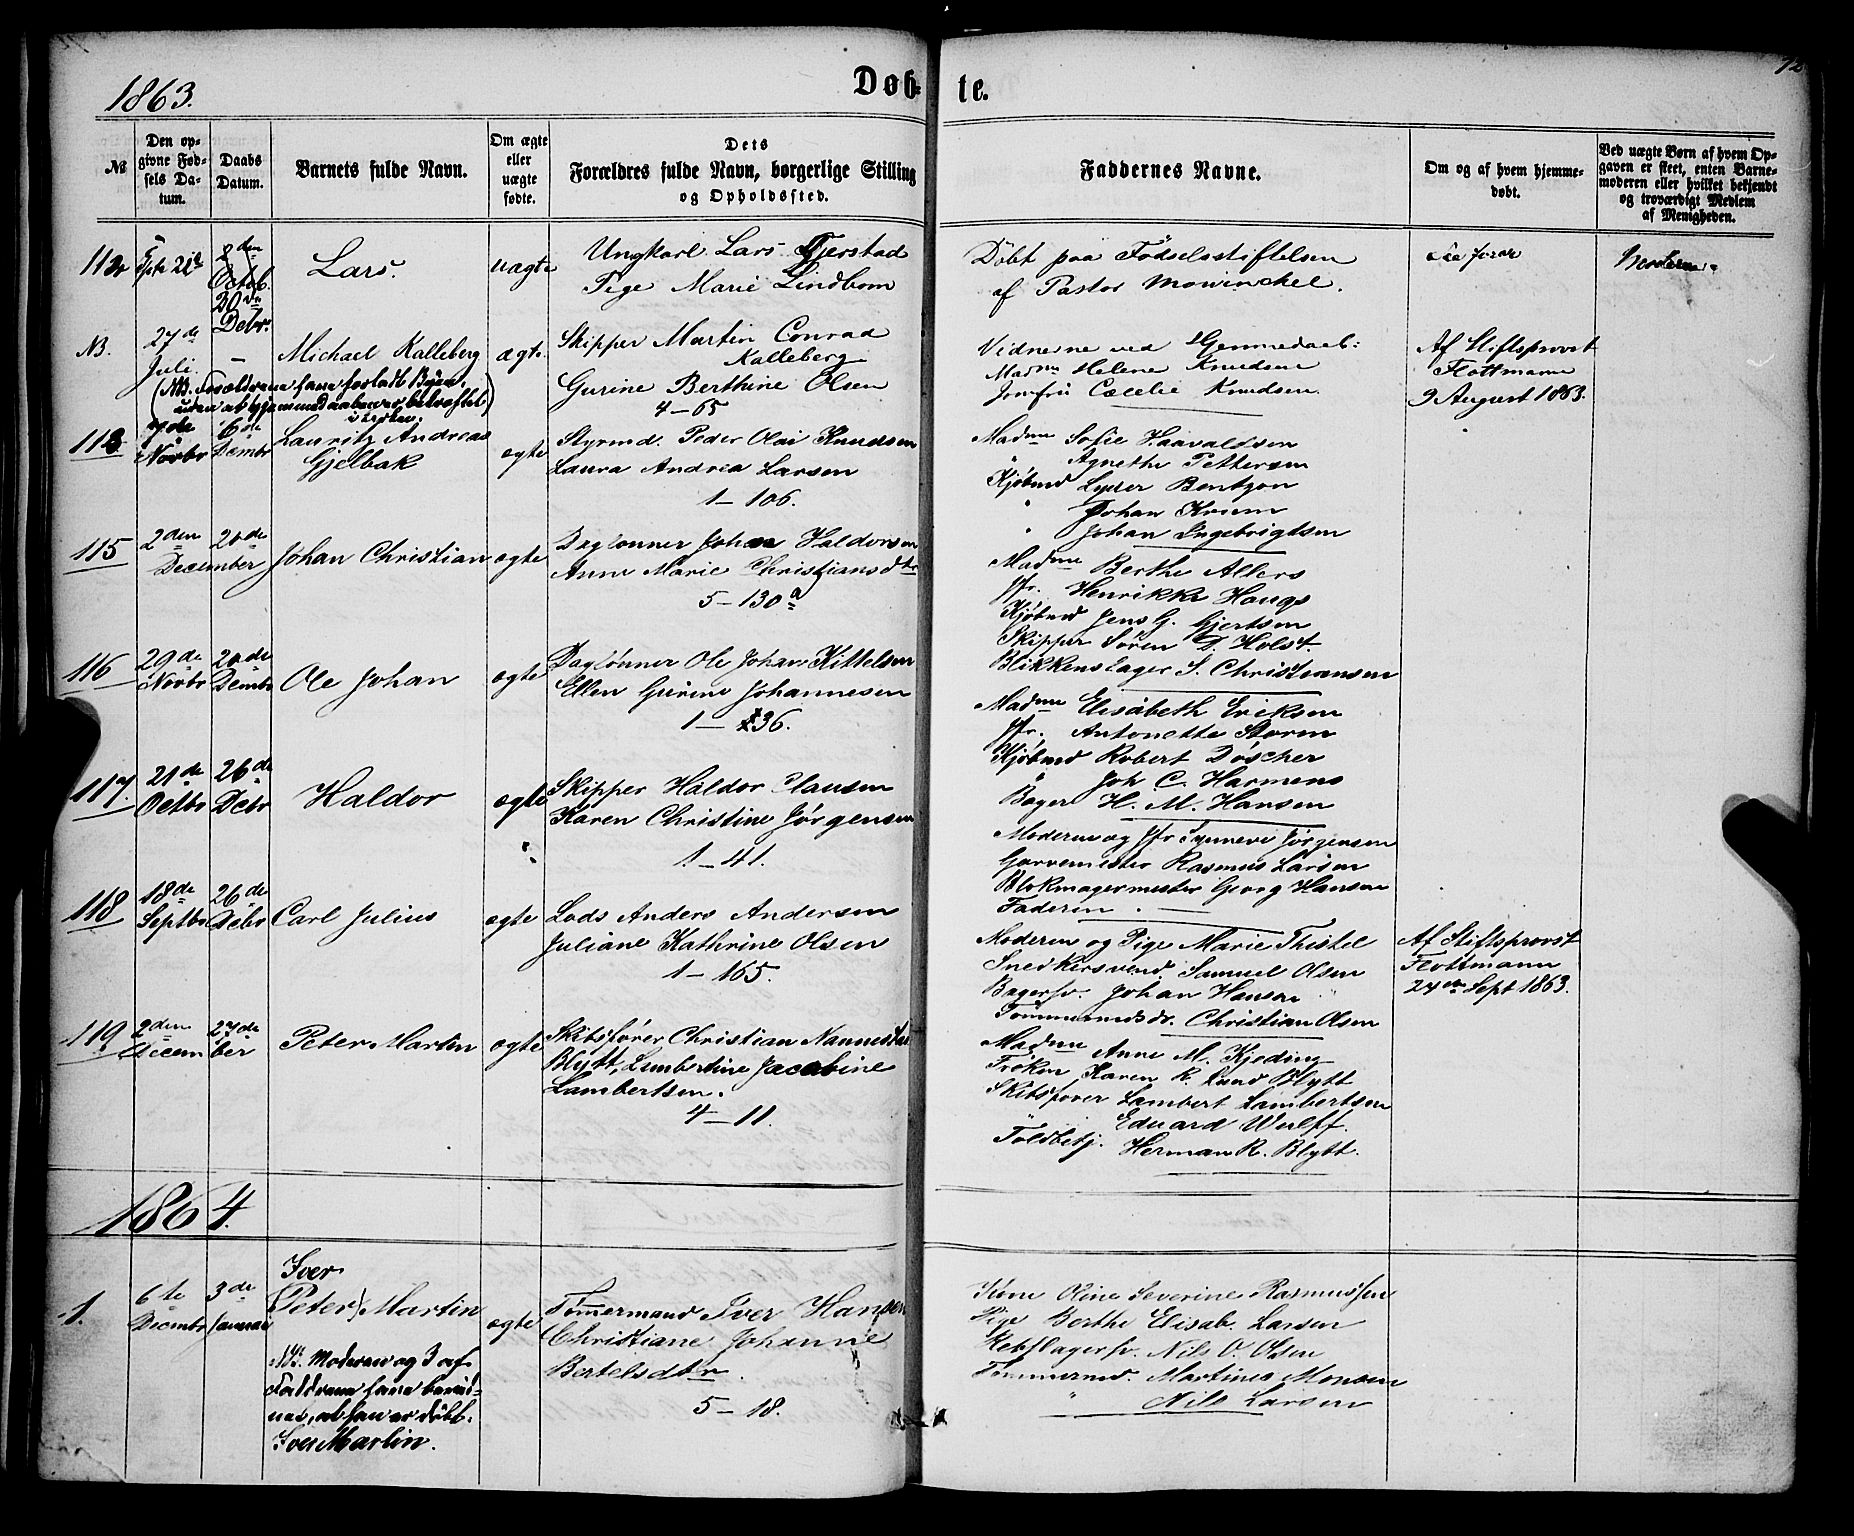 1863.
Døb-
te.
№
Den op-
givne Fød-
sels Da-
tum.
Daabs
Datum.
Barnets fulde Navn.
Om ægte
eller
uægte
fødte.
Dets
Forældres fulde Navn, borgerlige Stilling
og Opholdssted.
Faddernes Navne.
Om og af hvem hjemme-
døbt.
Ved uægte Børn af hvem Op-
gaven er skeet, enten Barne-
moderen eller hvilket bekjendt
og troværdigt Medlem
af Menigheden.
Octob.
20de
Debr.
Lars.
uægte
Ungkarl Lars Tjerstad
Pige Marie Lindbom
Døbt paa Fødselsstiftelsen
af Pastor Mowinckel.
Moderen
NB.
27de
Juli.
–
Michael Kalleberg
ægte
Skipper Martin Conrad
Kalleberg
Gurine Berthine Olsen
4–65
(NB. Forældrene have forladt Byen,
i Kirken.
Vidnerne ved
Madme Helene Knudsen
Jomfru Cæcelie Knudsen.
Af Stiftsprovst
Flottmann
9 August 1863.
Novbr
6te
Dcembr
Lauritz Andreas
Gjelbak
ægte
Styrmd. Peder Olai Knudsen
Laura Andrea Larsen
1–106.
Madme Sofie Haavaldsen
" Agnethe Pettersen
Kjøbmd Lyder Bentzon
" Johan
" Johan Ingebrigtsen
115
2den
20de
December
Johan Christian
ægte
Daglønner Johan Haldorsen
Anne Marie Christiansdtr
5–130a
Madme Berthe Allers
Jfr. Henrikke Haugs
Kjøbmd Jens G. Gjertsen
Skipper Søren D. Holst.
Blikkenslager S. Christiansen
116
29de
Novbr
20de
Dcembr
Ole Johan
ægte
Daglønner Ole Johan Kittelsen
Ellen Gurine Johannesen
1– 36.
Madme Elisabeth Eriksen
Jfr. Antonette Storm
Kjøbmd Robert Døscher
" Joh C. Harmens
Bager H. M. Hansen
117.
21de
Octbr
26de
Debr
Haldor
ægte
Skipper Haldor Clausen
Karen Christine Jørgensen
1–41.
Moderen og Jfr Synneve Jørgensen
Garvemester Rasmus Larsen
Blokmagermester Georg Hansen
Faderen.
118
18de
Septbr
26de
Debr
Carl Julius
ægte
Lods Anders Andersen
Juliane Kathrine Olsen
1–165.
Moderen og Pige Marie Thistel
Snedkersvend. Samuel Olsen
Bagersv. Johan Hansen
Tømmermdsdr. Christian Olsen
Af Stiftsprovst
Flottmann
24de Sept 1863.
119
2den
27de
December
Peter Martin
ægte
Skibsfører Christian Nannestad
Blytt, Lambertine Jacobine
Lambertsen.
4–11.
Madme Anne M. Kjeding
Frøken Karen R. Lund Blytt
Skibsfører Lambert Lambertsen
Eduard Wulff.
Toldbetj. Herman R. Blytt.
1864.
1.
6te
Dcembr
3de
Januar
Iver
(Peter) Martin
ægte
Tømmermand Iver Hansen
Christiane Johanne
Bertelsdtr.
5–18.
NB. Moderen og 3 af
Fadderne have bevid-
net, at han er døbt:
Iver Martin.
Kone Oline Severine Rasmussen
Pige Berthe Elisab. Larsen
Rebslagersv. Nils O. Olsen
Tømmermd. Martinus Monsen
" Nils Larsen